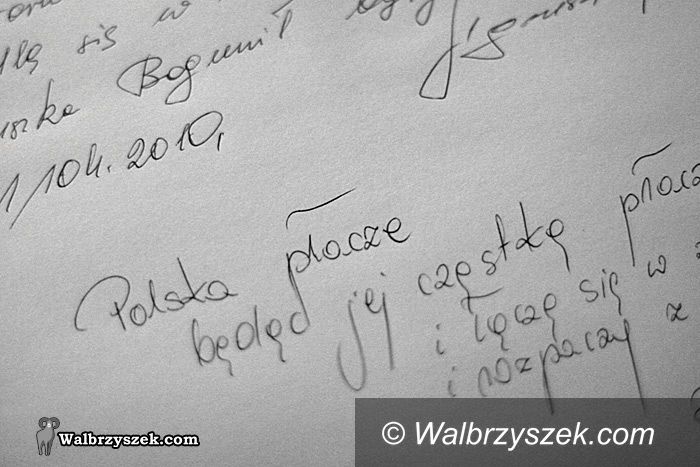 się w
Bogumił
04.2010,
Polska płacze
będąc jej cząstką płacz
i łączę się w
i rozpaczy z
Walbrzyszek.com
© Walbrzyszek.com